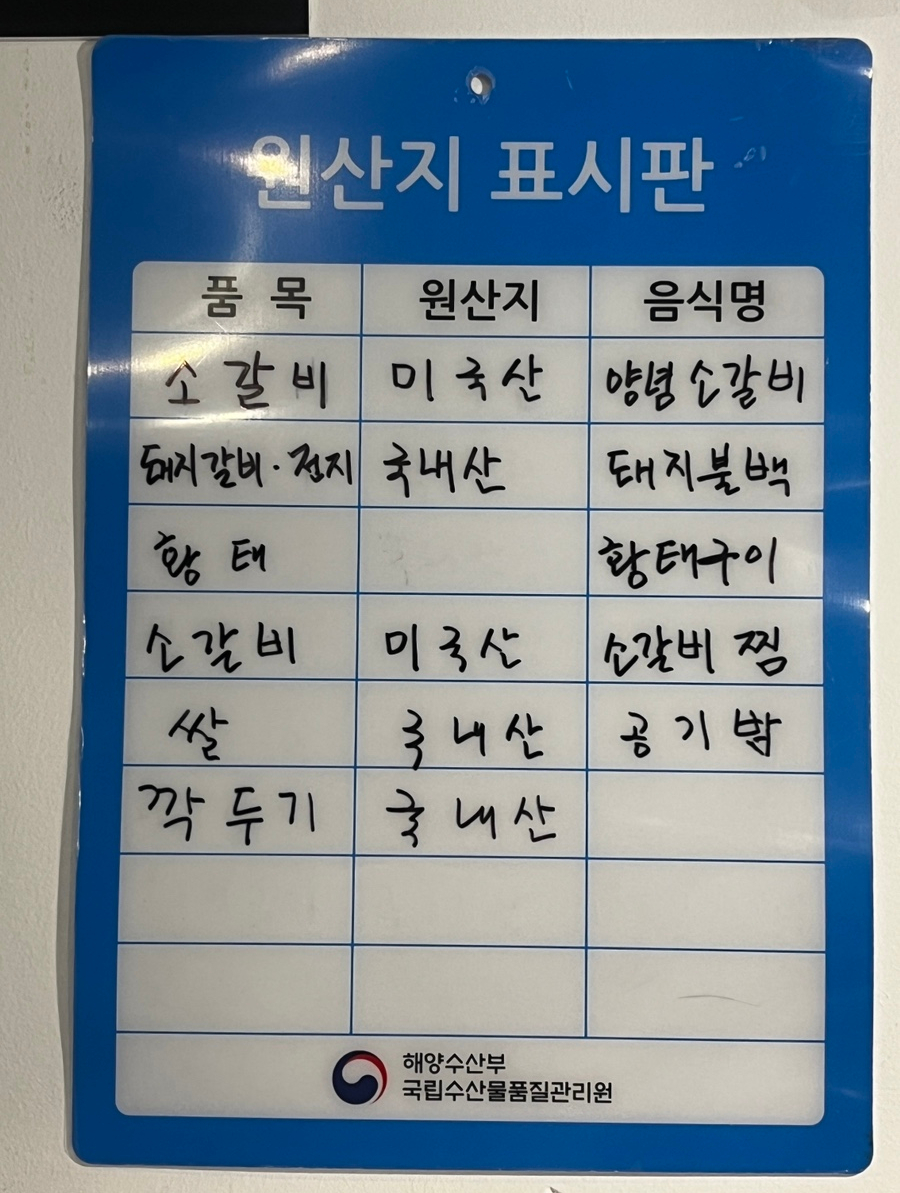 원산지 표시판
품 목 원산지 음식명
소갈비 미국산 양념소갈비
돼지갈비·전지 국내산 돼지불백
황태 황태구이
소갈비 미국산 소갈비찜
쌀 국내산 공기밥
깍두기 국내산
해양수산부
국립수산물품질관리원